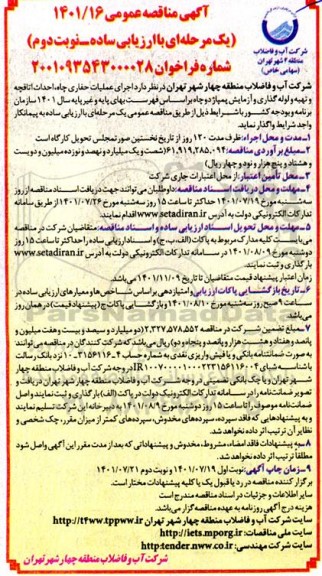 آگهی مناقصه عمومی ۱۴۰۱/۱۶
(یک مرحله‌ای با ارزیابی ساده - نوبت دوم)
شماره فراخوان ۲۰۰۱۰۹۳۵۴۳۰۰۰۰۲۸
شرکت آب و فاضلاب
منطقه ۴ شهر تهران
(سهامی خاص)
شرکت آب و فاضلاب منطقه چهار شهر تهران در نظر دارد اجرای عملیات حفاری چاه، احداث اتاقچه
و تهیه و لوله گذاری و آزمایش پمپاژ دو چاه بر اساس فهرست بهای پایه و غیر پایه سال ۱۴۰۱ سازمان
برنامه و بودجه کشور با شرایط ذیل از طریق مناقصه عمومی یک مرحله‌ای با ارزیابی ساده به پیمانکار
واجد شرایط واگذار نماید.
۱- مدت و محل اجراء: ظرف مدت ۱۲۰ روز از تاریخ نخستین صورتمجلس تحویل کارگاه است
۲- مبلغ برآوردی مناقصه: ۶۱,۹۱۹,۲۸۵,۰۹۴ (شصت و یک میلیارد و نهصد و نوزده میلیون و دویست
و هشتاد و پنج هزار و نود و چهار ریال)
۳- محل تأمین اعتبار: از محل اعتبارات جاری شرکت
۴- مهلت و محل دریافت اسناد مناقصه: داوطلبان می توانند جهت دریافت اسناد مناقصه از روز
سه‌شنبه مورخ ۱۴۰۱/۰۷/۱۹ حداکثر تا ساعت ۱۵ روز سه‌شنبه مورخ ۱۴۰۱/۰۷/۲۶ از طریق سامانه
تدارکات الکترونیکی دولت به آدرس www.setadiran.ir اقدام نمایند.
۵- مهلت و محل تحویل اسناد ارزیابی ساده و اسناد مناقصه: متقاضیان شرکت در مناقصه
می‌بایست کلیه مدارک مربوط به پاکات (الف، ب، ج) و اسناد ارزیابی ساده را حداکثر تا ساعت ۱۵ روز
دوشنبه مورخ ۱۴۰۱/۰۸/۰۹ در سامانه تدارکات الکترونیکی دولت به آدرس www.setadiran.ir
بارگذاری و ثبت نمایند.
زمان اعتبار پیشنهاد قیمت متقاضیان تا تاریخ ۱۴۰۱/۱۱/۰۹ می‌باشد.
۶- تاریخ بازگشایی پاکات: ارزیابی و امتیازدهی بر اساس شاخص‌ها و معیارهای ارزیابی ساده در
ساعت ۹ صبح روز سه‌شنبه مورخ ۱۴۰۱/۰۸/۱۰ و بازگشایی پاکات ج (پیشنهاد قیمت) در همان روز
می‌باشد.
۷- مبلغ تضمین شرکت در مناقصه ۲,۲۲۷,۵۷۸,۵۵۲ (دو میلیارد و دویست و بیست و هفت میلیون و
پانصد و هفتاد و هشت هزار و پانصد و پنجاه و دو) ریال می‌باشد که شرکت کنندگان در مناقصه می‌توانند
به صورت ضمانتنامه بانکی و یا فیش واریزی نقدی به شماره حساب
نزد بانک رسالت
در وجه شرکت آب و فاضلاب منطقه چهار
شهر تهران و یا چک بانکی تضمینی در وجه شرکت آب و فاضلاب منطقه چهار شهر تهران دریافت و
تصویر ضمانتنامه را در سامانه تدارکات الکترونیک دولت در پاکت (الف) بارگذاری و ثبت نمایند و اصل
ضمانتنامه موصوف را تا ساعت ۱۵ روز دوشنبه مورخ ۱۴۰۱/۰۸/۰۹ به دبیرخانه این شرکت تسلیم نمایند
و به پیشنهادهایی که فاقد سپرده، سپرده‌های مخدوش، سپرده‌های کمتر از میزان مقرر، چک شخصی و
نظایر آن ترتیب اثر داده نخواهد شد.
۸- به پیشنهادات فاقد امضاء، مشروط، مخدوش و پیشنهاداتی که بعد از مدت مقرر این آگهی واصل شود
مطلقاً ترتیب اثر داده نخواهد شد.
۹- زمان چاپ آگهی: نوبت اول ۱۴۰۱/۰۷/۱۹ و نوبت دوم ۱۴۰۱/۰۷/۲۱
برگزار کننده مناقصه در رد یا قبول یک یا کلیه پیشنهادات مختار است.
سایر اطلاعات و جزئیات در اسناد مناقصه مندرج است
هزینه درج آگهی روزنامه به عهده مناقصه گزار می‌باشد.
سایت شرکت آب و فاضلاب منطقه چهار شهر تهران http://t4ww.tpww.ir
سایت ملی مناقصات: http://iets.mporg.ir
سایت شرکت مهندسی: http:tender.nww.co.ir
شرکت آب و فاضلاب منطقه چهار شهر تهران